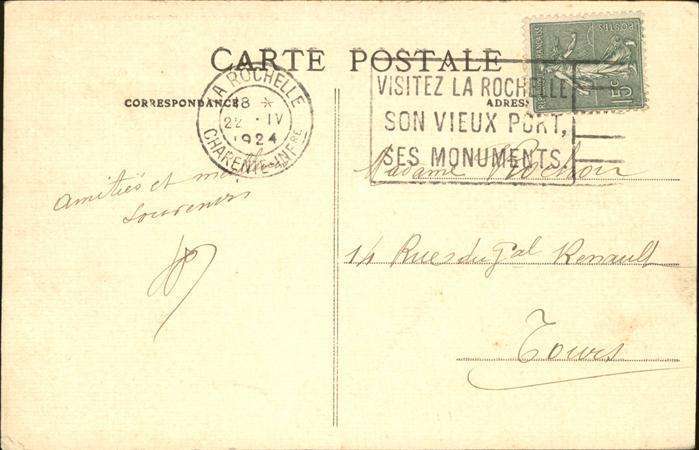 CARTE POSTALE
CORRESPONDANCE
ADRESSE
LA ROCHELLE
18 *
22 - IV
1924
CHARENTE-INFRE
VISITEZ LA ROCHELLE
SON VIEUX PORT,
SES MONUMENTS
REPUBLIQUE FRANCAISE
POSTES
15c
Amitiés et meilleurs
souvenirs
Madame Rochon
14 Rue du Gal Renault
Tours